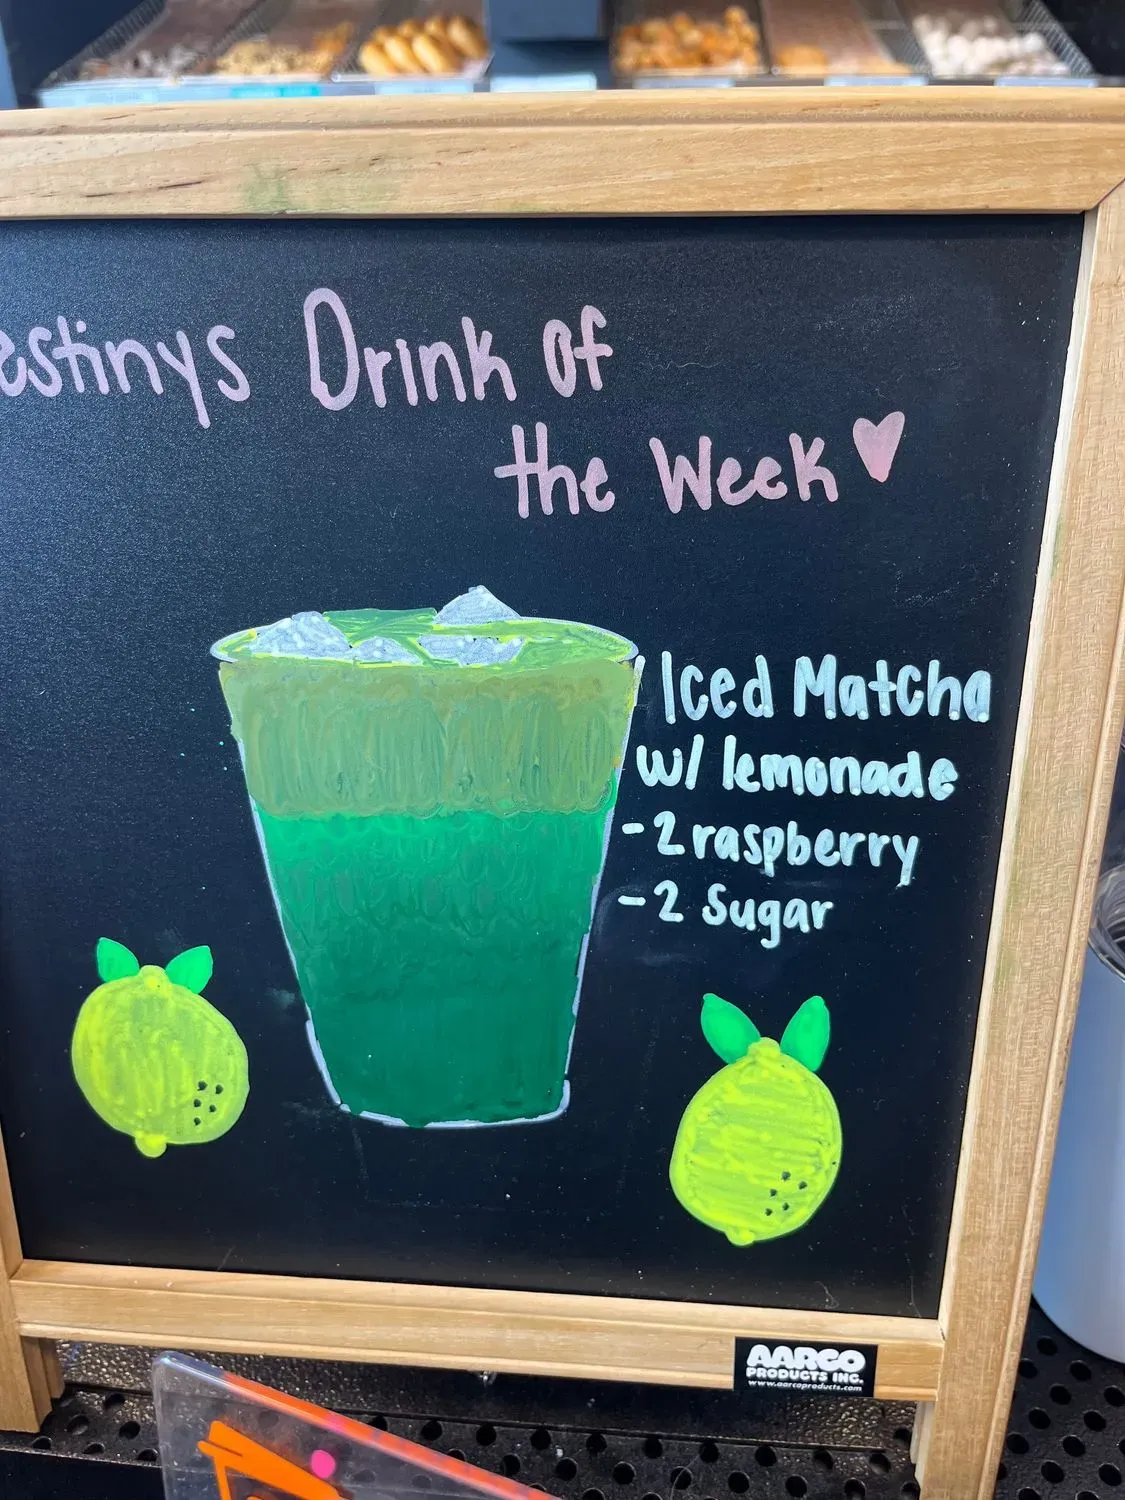 estinys Drink of
the Week
Iced Matcha
w/ lemonade
-2 raspberry
-2 Sugar
AARCO
PRODUCTS INC.
www.aarcoproducts.com